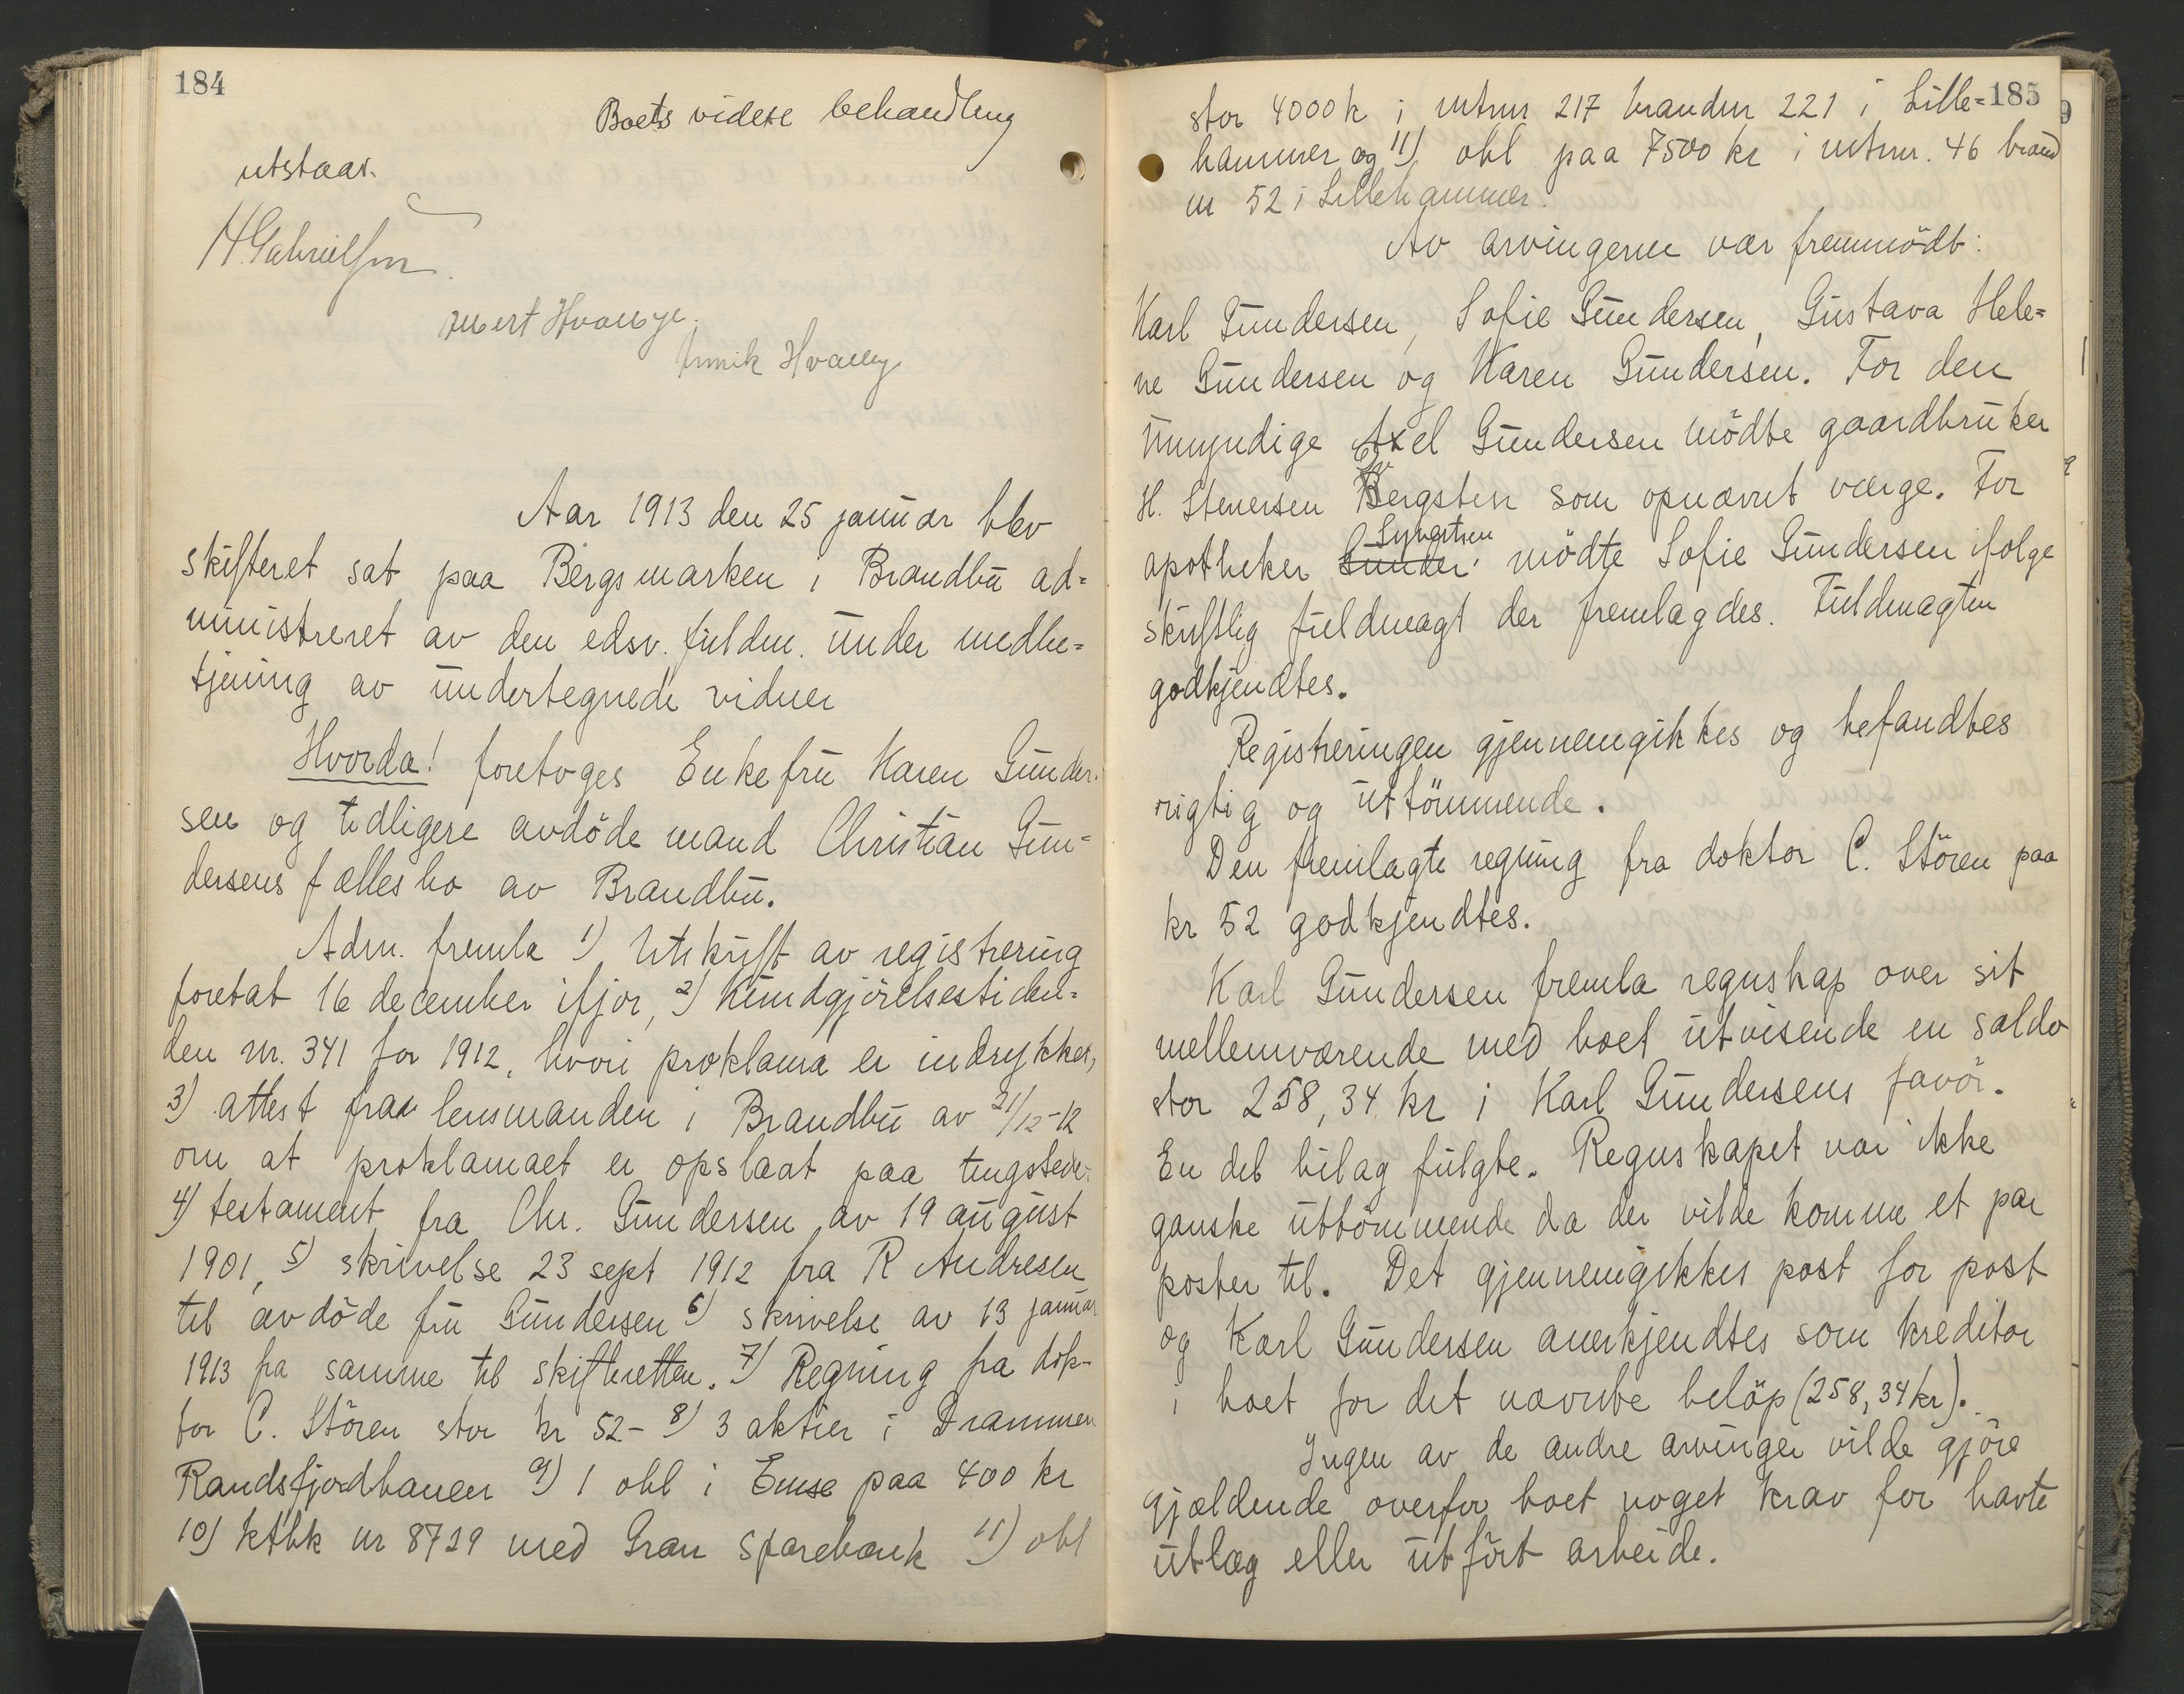 184
Boets videre behandling
utstaar.
H. Gabrielsen.
Aar 1913 den 25 januar blev
skifteret sat paa Bergsmarken i Brandbu ad=
ministreret av den edsv. fuldm. under medbe=
tjening av undertegnede vidner
Hvorda! foretoges Enkefru Karen Gunder-
sen og tidligere avdöde mand Christian Gun-
dersens fællesbo av Brandbu.
Adm. fremla 1) Utskrift av registrering
foretat 16 december ifjor, 2) Kundgjörelsestiden=
den nr. 341 for 1912, hvori proklama er indrykket,
3) attest fra lensmanden i Brandbu av 21/12-12
om at proklamaet er opslaat paa tingstedet.
4) testament fra Chr. Gundersen av 19 august
1901, 5) skrivelse 23 sept 1912 fra R Andresen
til avdöde fru Gundersen 6) skrivelse av 13 januar
1913 fra samme til skifteretten. 7) Regning fra dok-
tor C. Stören stor kr 52- 8) 3 aktier i Drammen
Randsfjordbanen 9) 1 obl i paa 400 kr
10) ktbk nr 8729 med Gran Sparebank 11) obl
185
stor 4000 k i mtrnr 217 brandnr 221 i Lille=
hammer og 11) obl paa 7500 kr i mtrnr. 46 brand
nr 52 i Lillehammer.
Av arvingerne var fremmödt:
Karl Gundersen, Sofie Gundersen, Gustava Hele=
ne Gundersen og Karen Gundersen. For den
umyndige Axel Gundersen mödte gaardbruker
H. Stenersen Bergsten som opnævnt værge. For
apotheker Gunder. mödte Sofie Gundersen ifölge
skriftlig fuldmagt der fremlagdes. Fuldmagten
godkjendtes.
Registreringen gjennemgikkes og befandtes
rigtig og uttömmende.
Den fremlagte regning fra doktor C. Stören paa
kr 52 godkjendtes.
Karl Gundersen fremla regnskap over sit
mellemværende med boet utvisende en saldo
stor 258,34 kr i Karl Gundersens favör.
En del bilag fulgte. Regnskapet var ikke
ganske uttömmende da der vilde komme et par
poster til. Det gjennemgikkes post for post
og Karl Gundersen anerkjendtes som kreditor
i boet for det nævnte belöp (258,34 kr).
Ingen av de andre arvinger vilde gjöre
gjældende overfor boet noget krav for havte
utlæg eller utfört arbeide.